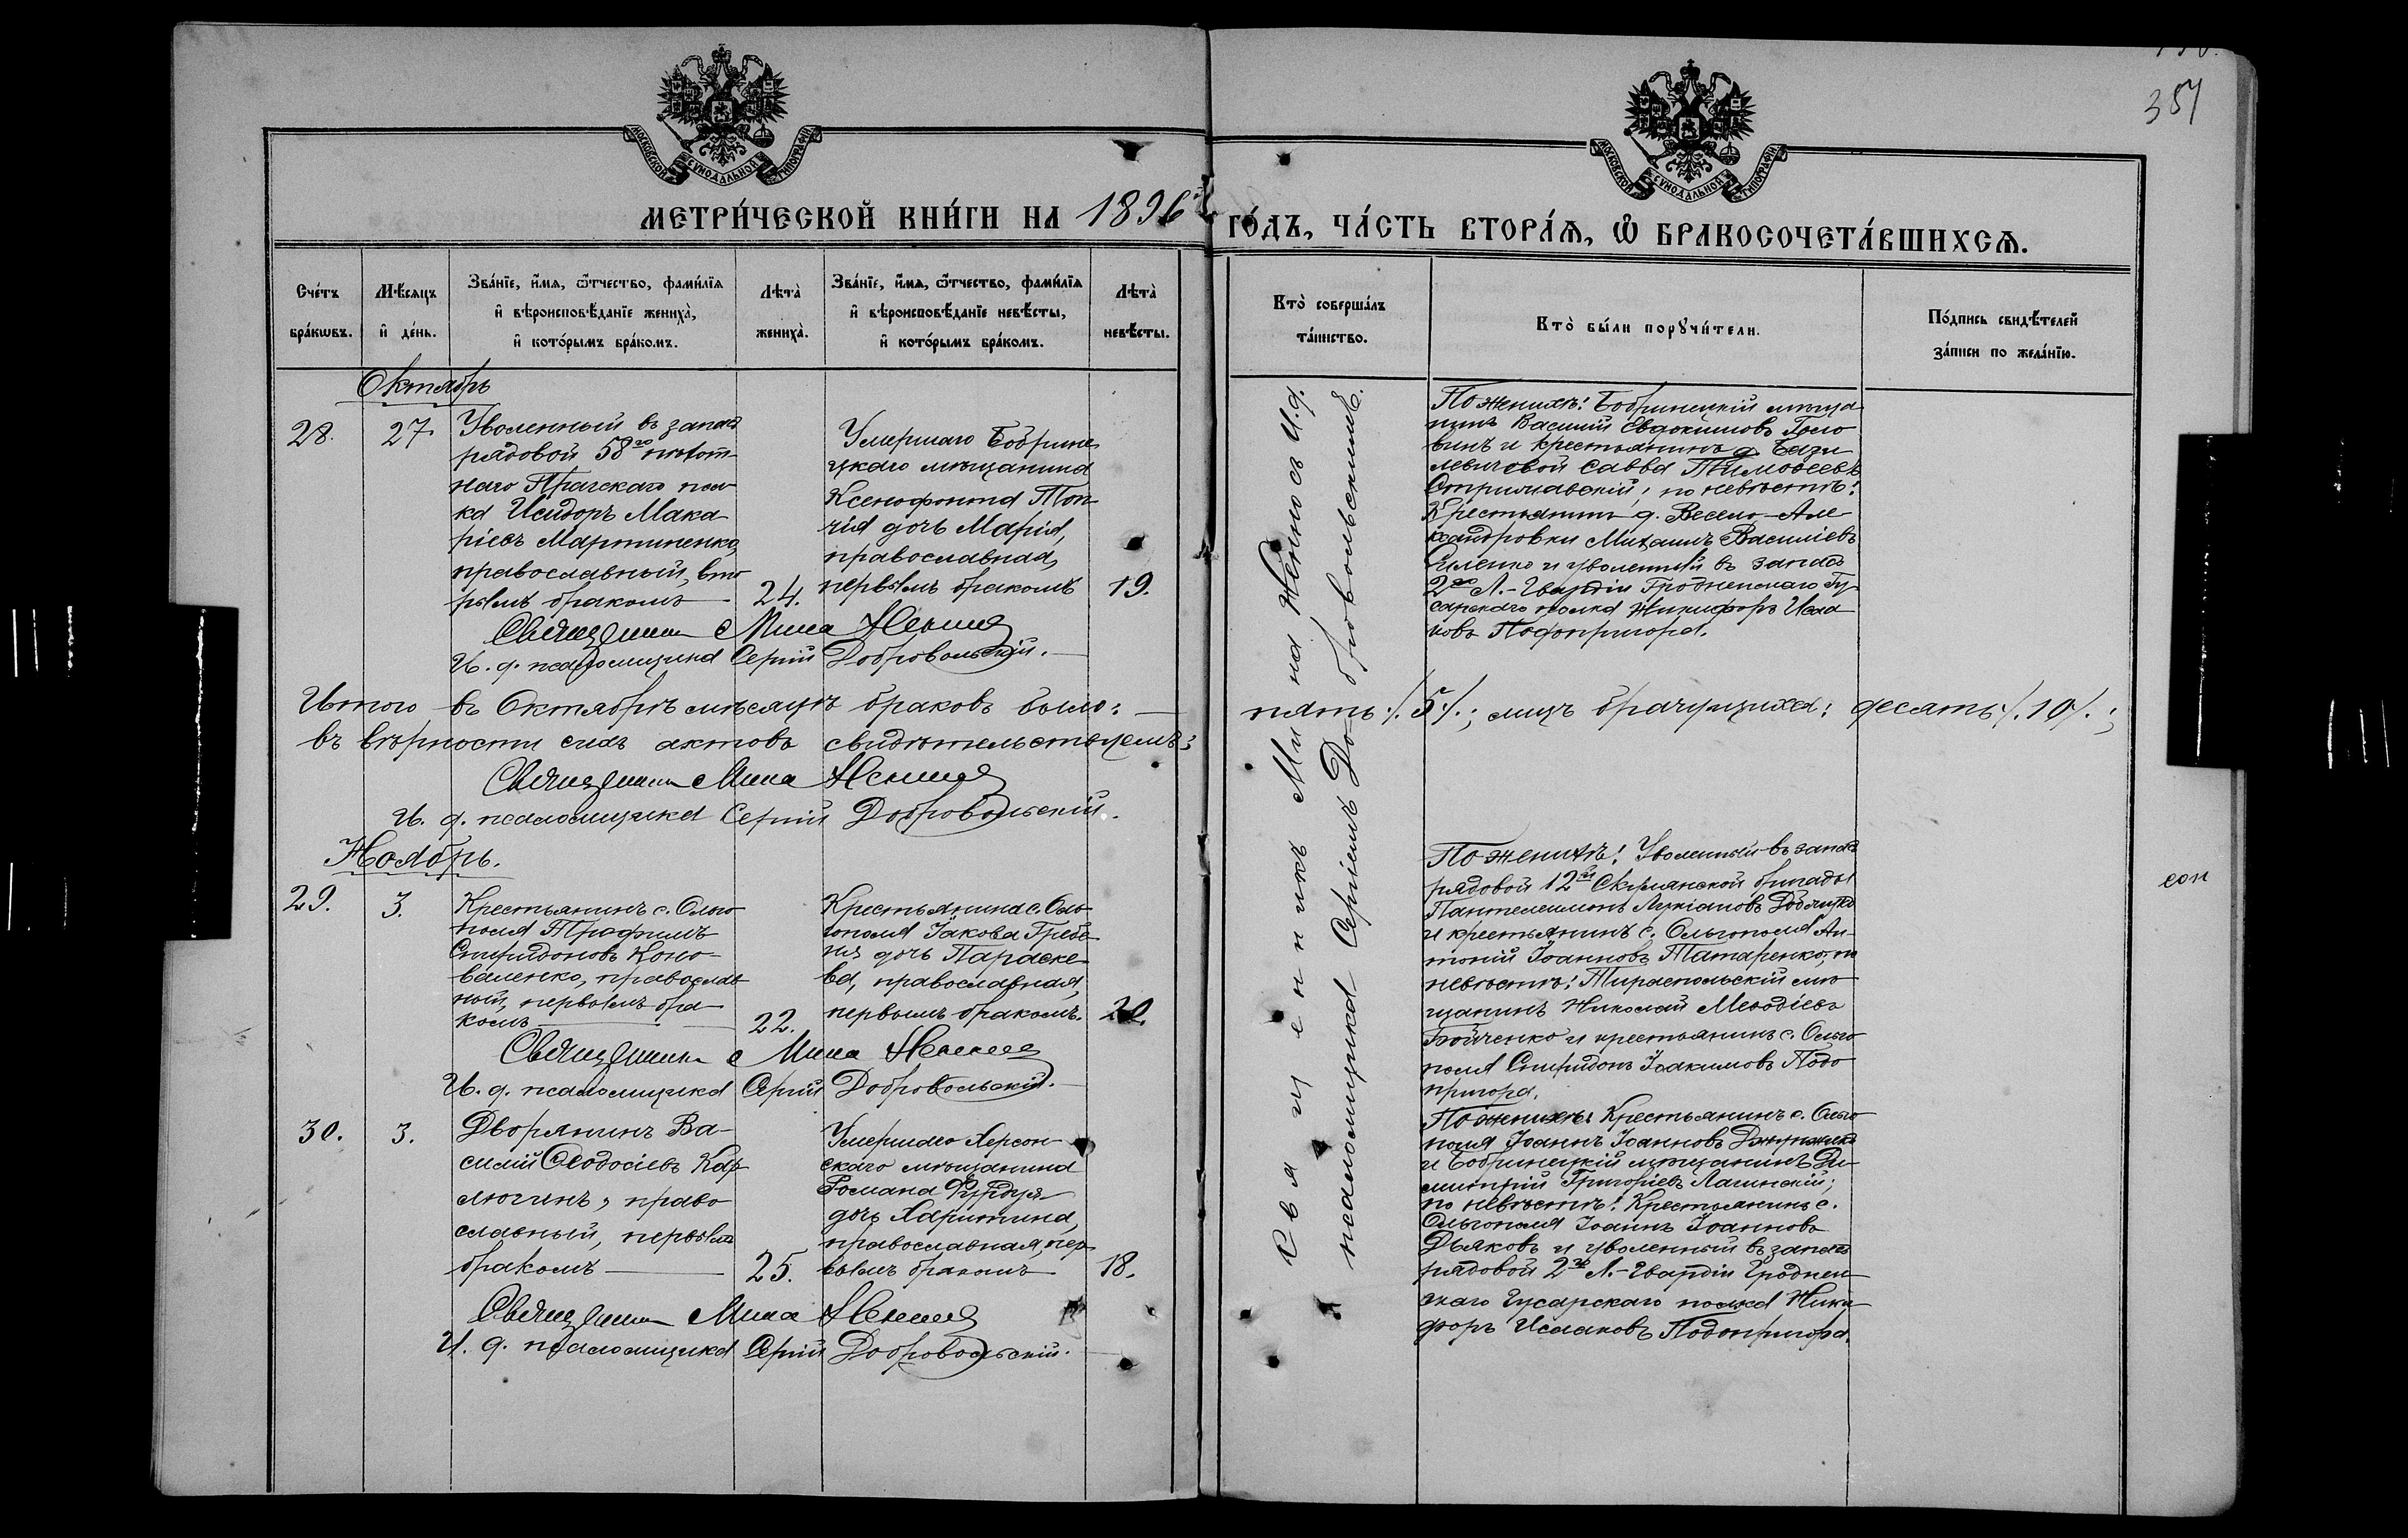 МОСКОВСКОЙ СѴНОДАЛЬНОЙ ТИПОГРАФІИ
МОСКОВСКОЙ СѴНОДАЛЬНОЙ ТИПОГРАФІИ
357
МЕТРИ́ЧЕСКОЙ КНИ́ГИ НА 1896
ГО́ДЪ, ЧА́СТЬ ВТОРА́Ѧ, Ѽ БРАКОСОЧЕТА́ВШИХСѦ.
Сче́тъ бра́кωвъ.
Мѣ́сяцъ и҆ де́нь.
Зва́нїе, и҆́мѧ, ѻ҆́тчество, фами́лїѧ и҆ вѣроисповѣ́данїе жениха̀, и҆ кото́рымъ бра́комъ.
Лѣта̀ жениха̀.
Зва́нїе, и҆́мѧ, ѻ҆́тчество, фами́лїѧ и҆ вѣроисповѣ́данїе невѣ́сты, и҆ кото́рымъ бра́комъ.
Лѣта̀ невѣ́сты.
Кто̀ соверша́лъ та́инство.
Кто̀ бы́ли порꙋчи́тели.
По́дпись свидѣ́телей за́писи по жела́нїю.
Октябрь
28.
27
Уволенный въ запасъ
рядовой 58го пѣхот-
наго Прагскаго пол-
ка Исидоръ Мака-
ріевъ Мартиненко,
православный, вто-
рымъ бракомъ
24.
Умершаго Бобрине-
цкаго мѣщанина
Ксенофонта Топ-
чія дочь Марія,
православная,
первымъ бракомъ
19.
Священникъ Мина
И. д. псаломщика Сергій Добровольскій.
По женихѣ: Бобринецкій мѣща-
нинъ Василій Евдокимовъ Голо-
винъ и крестьянинъ д. Бази-
левичевой Савва Тимоѳеевъ
по невѣстѣ:
Крестьянинъ д. Весело-Але-
ксандровки Михаилъ Василіевъ
и уволенный въ запасъ
2го Л.-Гвардіи Гродненскаго Гу-
сарскаго полка Никифоръ Исаа-
ковъ Подопригора.
Итого въ Октябрѣ мѣсяцѣ браковъ было: пять /.5/.; лицъ брачущихся: десять /.10/.;
въ вѣрности сихъ актовъ свидѣтельствуемъ:
Священникъ Мина
И. д. псаломщика Сергій Добровольскій.
Ноябрь.
29.
3.
Крестьянинъ с. Ольго-
поля Трофимъ
Спиридоновъ Коно-
валенко, православ-
ный, первымъ бра-
комъ
22.
Крестьянина с. Оль-
гополя Іакова Гребе-
ня дочь Параске-
ва, православная,
первымъ бракомъ.
20.
Священникъ Мина
И. д. псаломщика Сергій Добровольскій.
По женихѣ: Уволенный въ запасъ
рядовой 12й бригады
Пантелеимонъ Лукіановъ
и крестьянинъ с. Ольгополя Ан-
тоній Іоанновъ Татаренко; по
невѣстѣ: Тираспольскій мѣ-
щанинъ Николай Меѳодіевъ
Бойченко и крестьянинъ с. Ольго-
поля Спиридонъ Іоакимовъ Подо-
пригора.
соп
30.
3.
Дворянинъ Ва-
силій Ѳеодосіевъ Кар-
люгинъ, право-
славный, первымъ
бракомъ
25.
Умершаго Херсон-
скаго мѣщанина
Романа
дочь Харитина,
православная, пер-
вымъ бракомъ
18.
Священникъ Мина
И. д. псаломщика Сергій Добровольскій.
По женихѣ: Крестьянинъ с. Ольго-
поля Іоаннъ Іоанновъ
и Бобринецкій мѣщанинъ Ди-
митрій Григоріевъ Лагинскій;
по невѣстѣ: Крестьянинъ с.
Ольгополя Іоаннъ Іоанновъ
Дьяковъ и уволенный въ запасъ
рядовой 2го Л.-Гвардіи Гроднен-
скаго Гусарскаго полка Ники-
форъ Исааковъ Подопригора.
Священникъ Мина съ И. д.
псаломщика Сергіемъ Добровольскимъ.